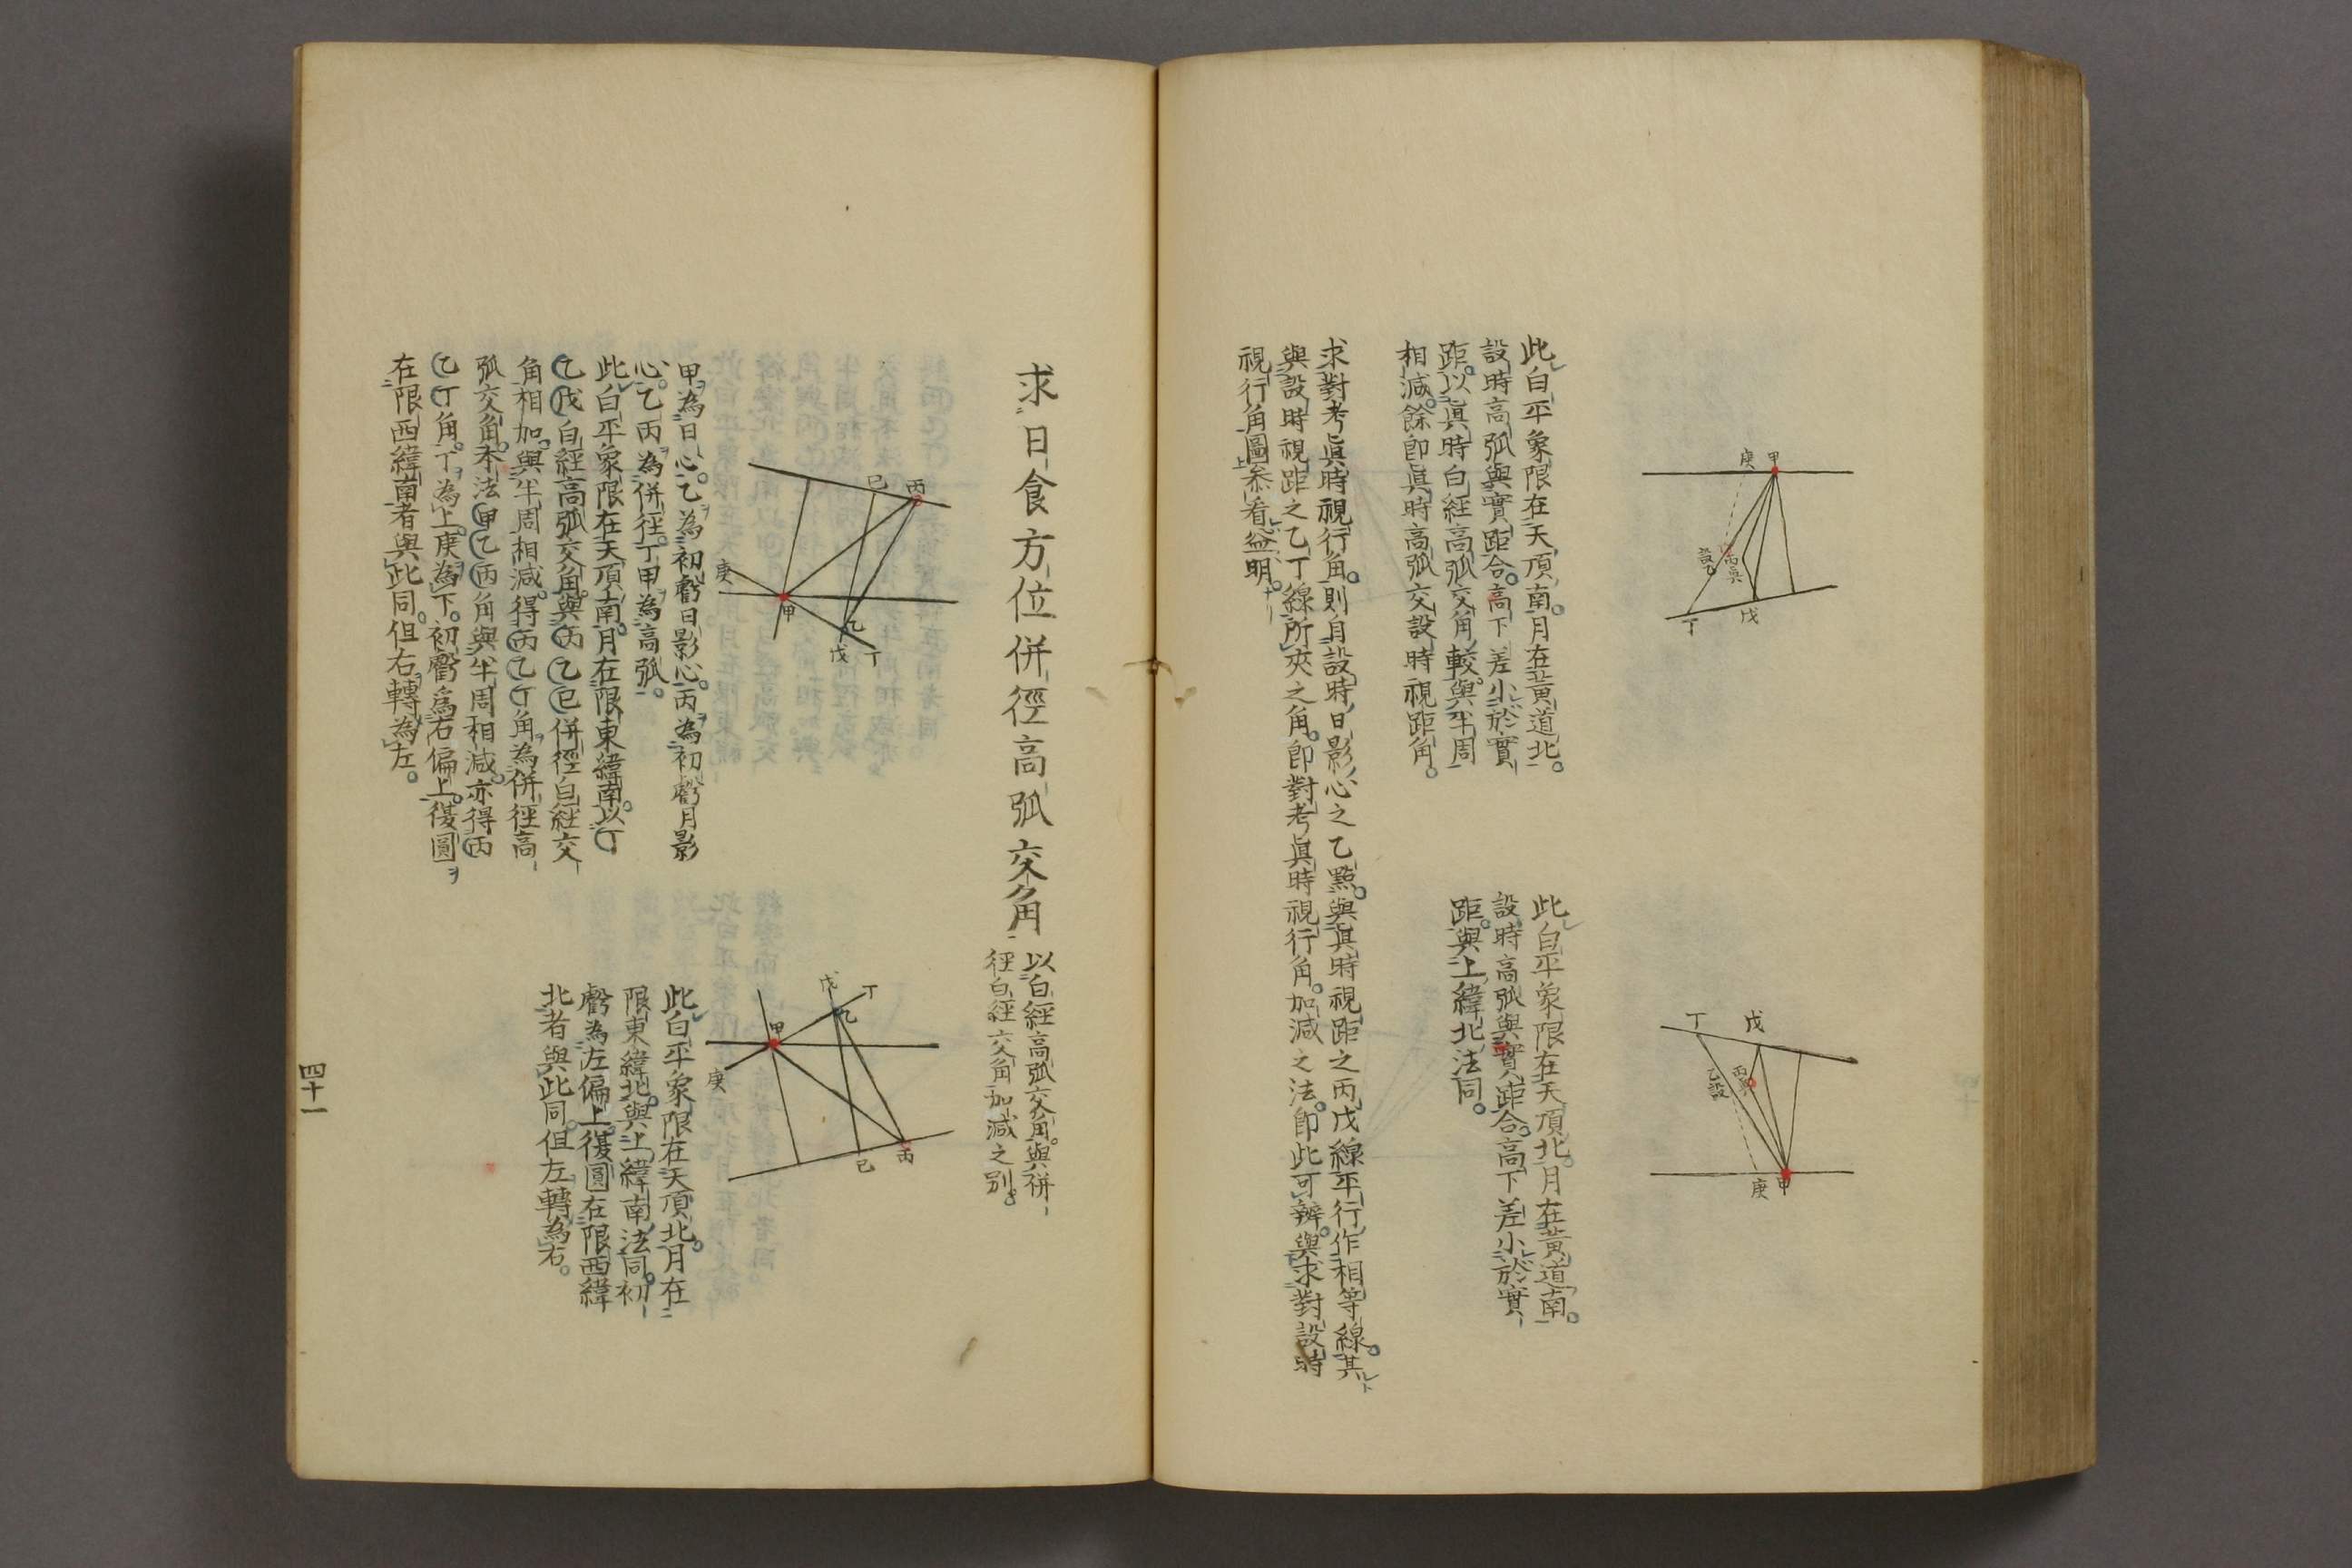 庚 甲
設乙 丙眞
丁 戊
此白平象限在天頂南。月在黃道北。
設時高弧與實距合。高下差小於實
距。以眞時白經高弧交角、較與半周
相減。餘卽眞時高弧交設時視距角。
丁 戊
乙設 丙眞
庚 甲
此白平象限在天頂北。月在黃道南。
設時高弧與實距合。高下差小於實
距。與上緯北法同。
求對考眞時視行角。則自設時日影心之乙點。與眞時視距之丙戊線平行作相等線。其
與設時視距之乙丁線所夾之角。卽對考眞時視行角。加減之法。卽此可辨。與求對設時
視行角圖叅看益明。
求日食方位併徑高弧交角
以白經高弧交角。與併
徑白經交角加減之別。
巳 丙
庚 甲
乙 戊 丁
甲為日心。乙為初虧日影心。丙為初虧月影
心。乙丙為併徑。丁甲為高弧。
此白平象限在天頂南。月在限東緯南。以丁
乙戊白經高弧交角。與丙乙巳併徑白經交
角相加。與半周相減。得丙乙丁角。為併徑高
弧交角。本法甲乙丙角與半周相減。亦得丙
乙丁角。丁為上。庚為下。初虧為右偏上。復圓
在限西緯南者與此同。但右轉為左。
戊 丁
甲 乙
庚 巳 丙
此白平象限在天頂北。月在
限東緯北。與上緯南法同。初
虧為左偏上。復圓在限西緯
北者與此同。但左轉為右。
四十一